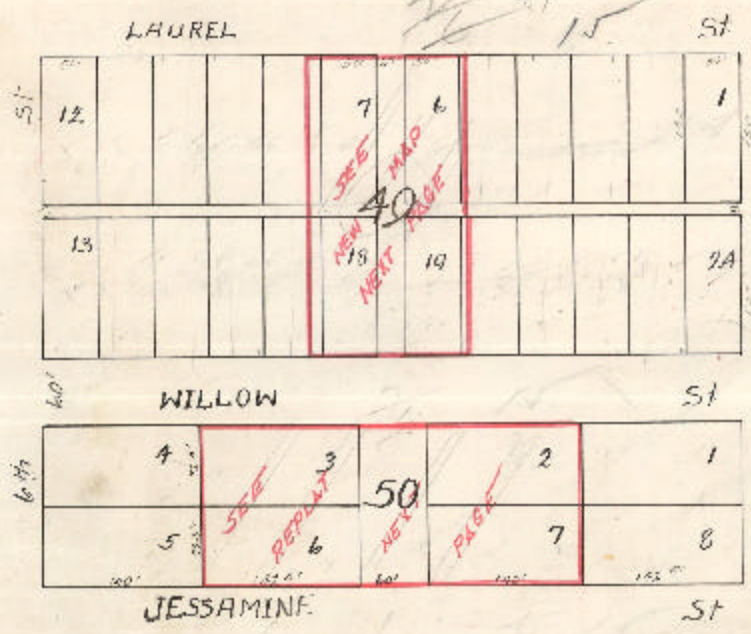 LAUREL 15 St
St 12 7 6 1
SEE MAP
40
NEW PAGE
NEXT
13 18 19 2A
60'
WILLOW St
6th
4 3 2 1
SEE 50
REPLAT NEXT PAGE
5 6 7 8
60'
JESSAMINE St